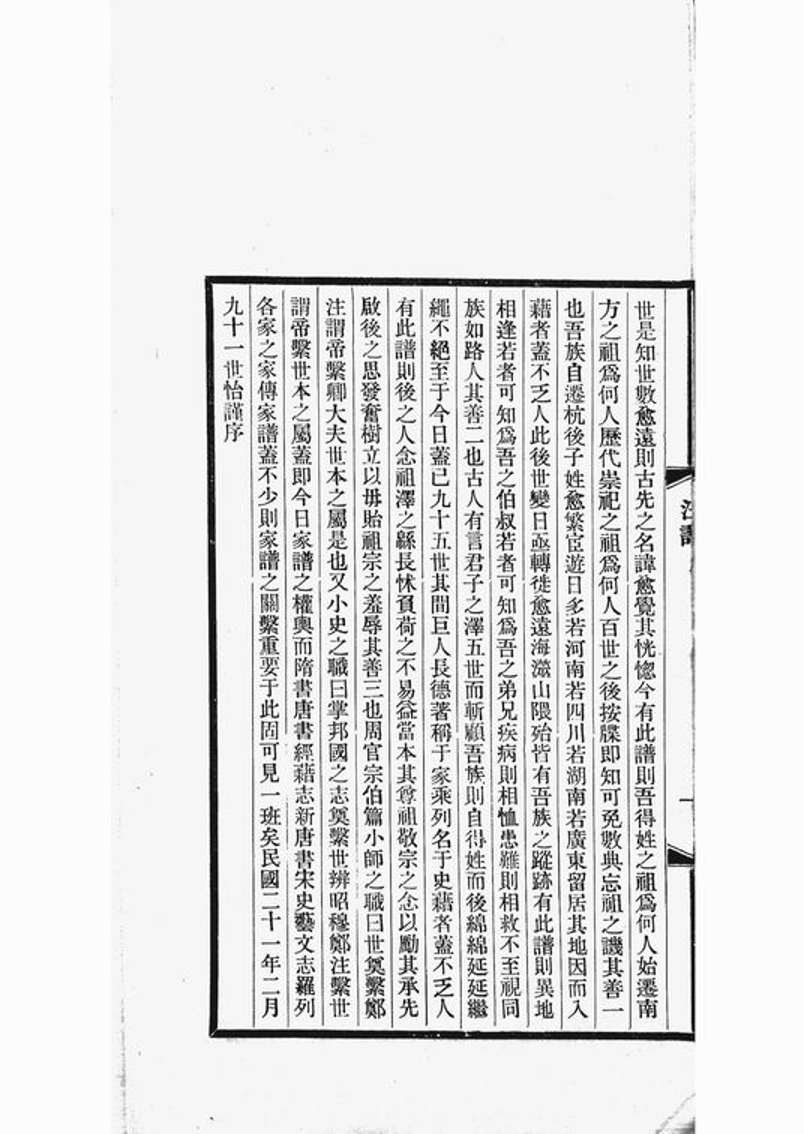 世是知世數愈遠則古先之名諱愈覺其恍惚今有此譜則吾得姓之祖爲何人始遷南
方之祖爲何人歷代崇祀之祖爲何人百世之後按牒即知可免數典忘祖之譏其善一
也吾族自遷杭後子姓愈繁宦遊日多若河南若四川若湖南若廣東留居其地因而入
藉者蓋不乏人此後世變日亟轉徙愈遠海澨山隈殆皆有吾族之蹤跡有此譜則異地
相逢若者可知爲吾之伯叔若者可知爲吾之弟兄疾病則相恤患難則相救不至視同
族如路人其善二也古人有言君子之澤五世而斬顧吾族則自得姓而後綿綿延延繼
繩不絕至于今日蓋已九十五世其間巨人長德著稱于家乘列名于史藉者蓋不乏人
有此譜則後之人念祖澤之緜長怵負荷之不易益當本其尊祖敬宗之念以勵其承先
啟後之思發奮樹立以毋貽祖宗之羞辱其善三也周官宗伯篇小師之職曰世奠繫鄭
注謂帝繫卿大夫世本之屬是也又小史之職曰掌邦國之志奠繫世辨昭穆鄭注繫世
謂帝繫世本之屬蓋即今日家譜之權輿而隋書唐書經藉志新唐書宋史藝文志羅列
各家之家傳家譜蓋不少則家譜之關繫重要于此固可見一班矣民國二十一年二月
九十一世怡謹序
一